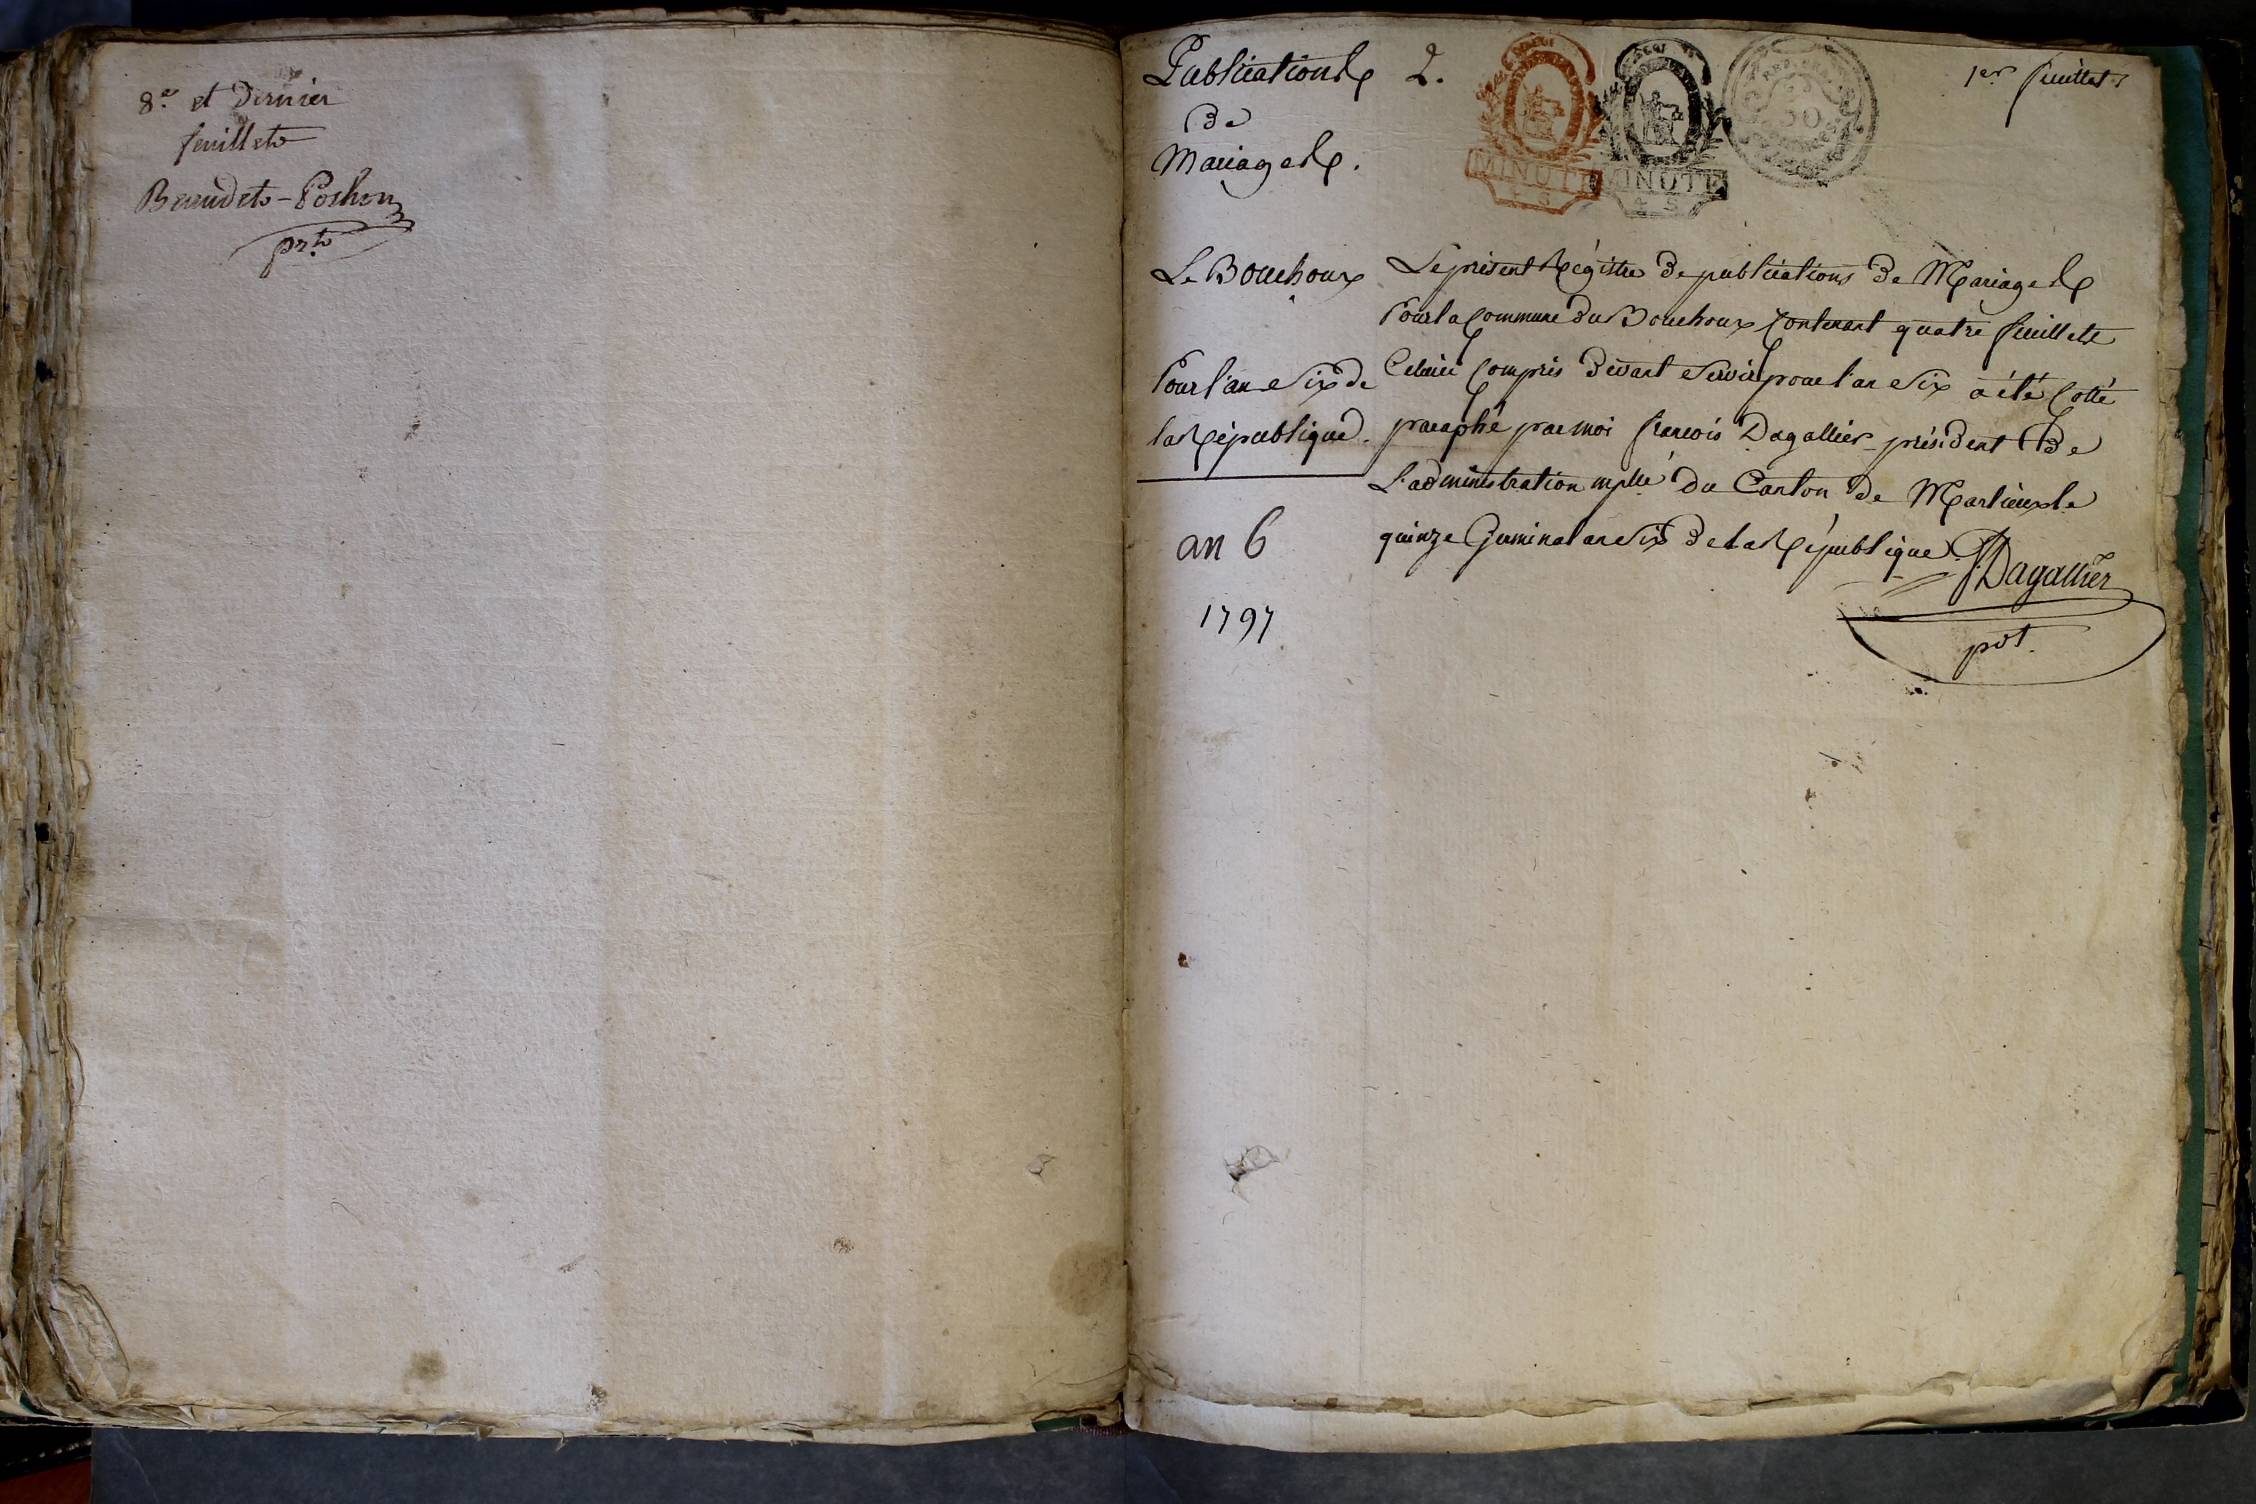 8.e et Dernier
feuillet
Beaudet-Pochon
pr.t
Publications 2.
de
Mariages.
1er feuillet
MINUTE
4 S
MINUTE
4 S
50
Le Bouchoux
Pour l'an Six de
la République.
an 6
1797
Le présent Régistre de publications de Mariages
Pour la Commune du Bouchoux Contenant quatre feuillets
Celuici Compris devant Servir pour l'an Six a été Cotté
paraphé par moi francois Dagallier président de
L'administration mplle du Canton de Marlieux le
quinze Germinal an Six de la République.
Dagallier
pdt.